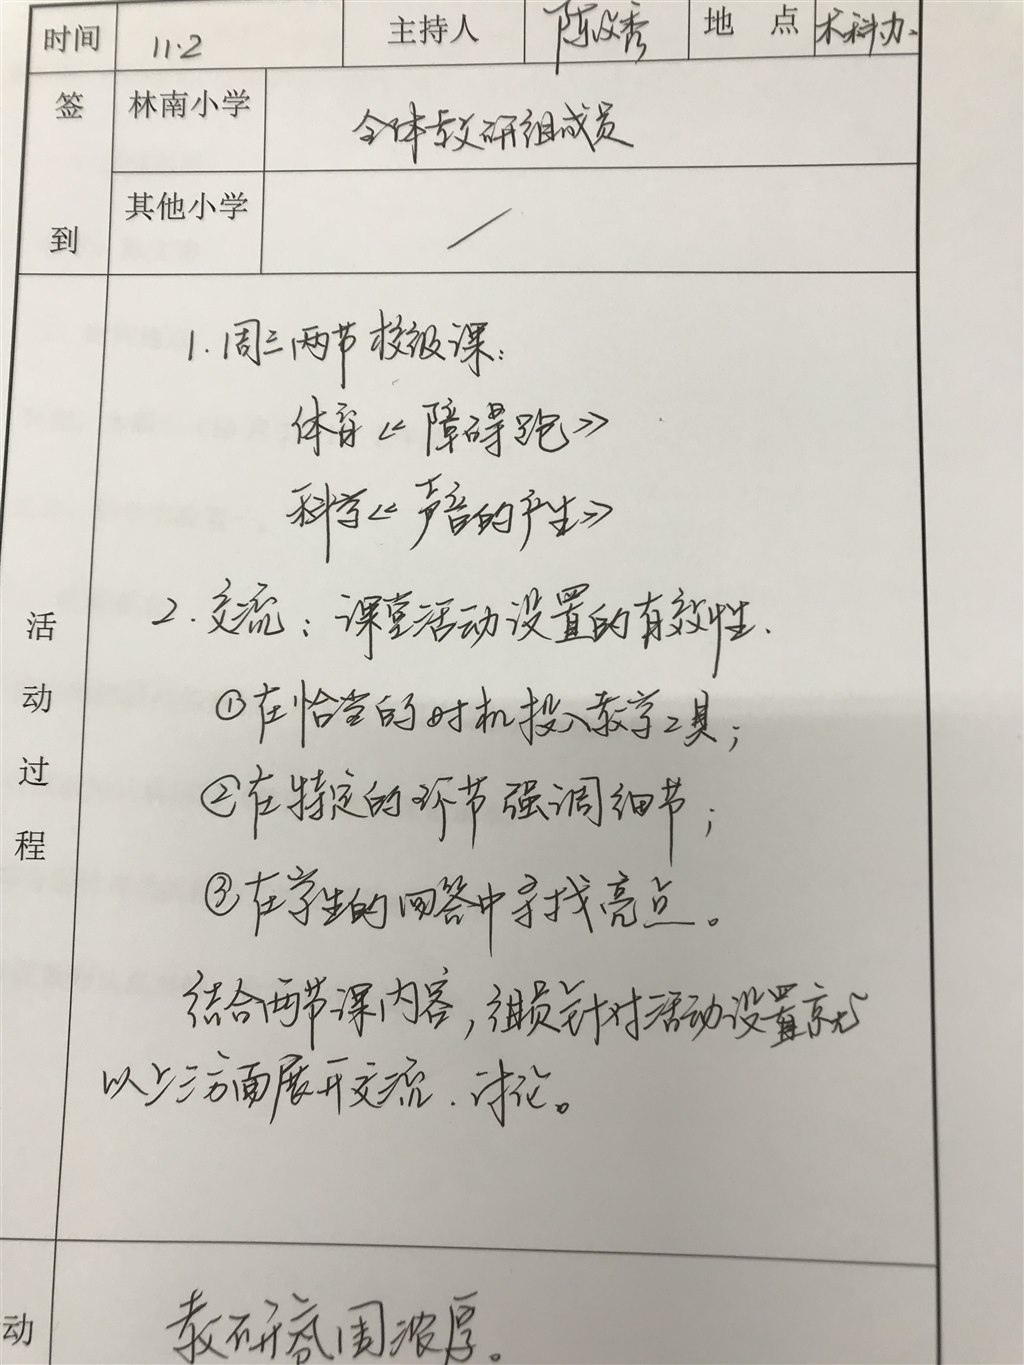 时间 11.2 主持人 陈文秀 地点 术科办
签到 林南小学 全体教研组成员
其他小学 /
活动过程
1.周三两节校级课:
体育《障碍跑》
科学《声音的产生》
2.交流:课堂活动设置的有效性.
①在恰当的时机投入教学工具;
②在特定的环节强调细节;
③在学生的回答中寻找亮点。
结合两节课内容,组员针对活动设置就
以上三方面展开交流.讨论。
动 教研氛围浓厚。